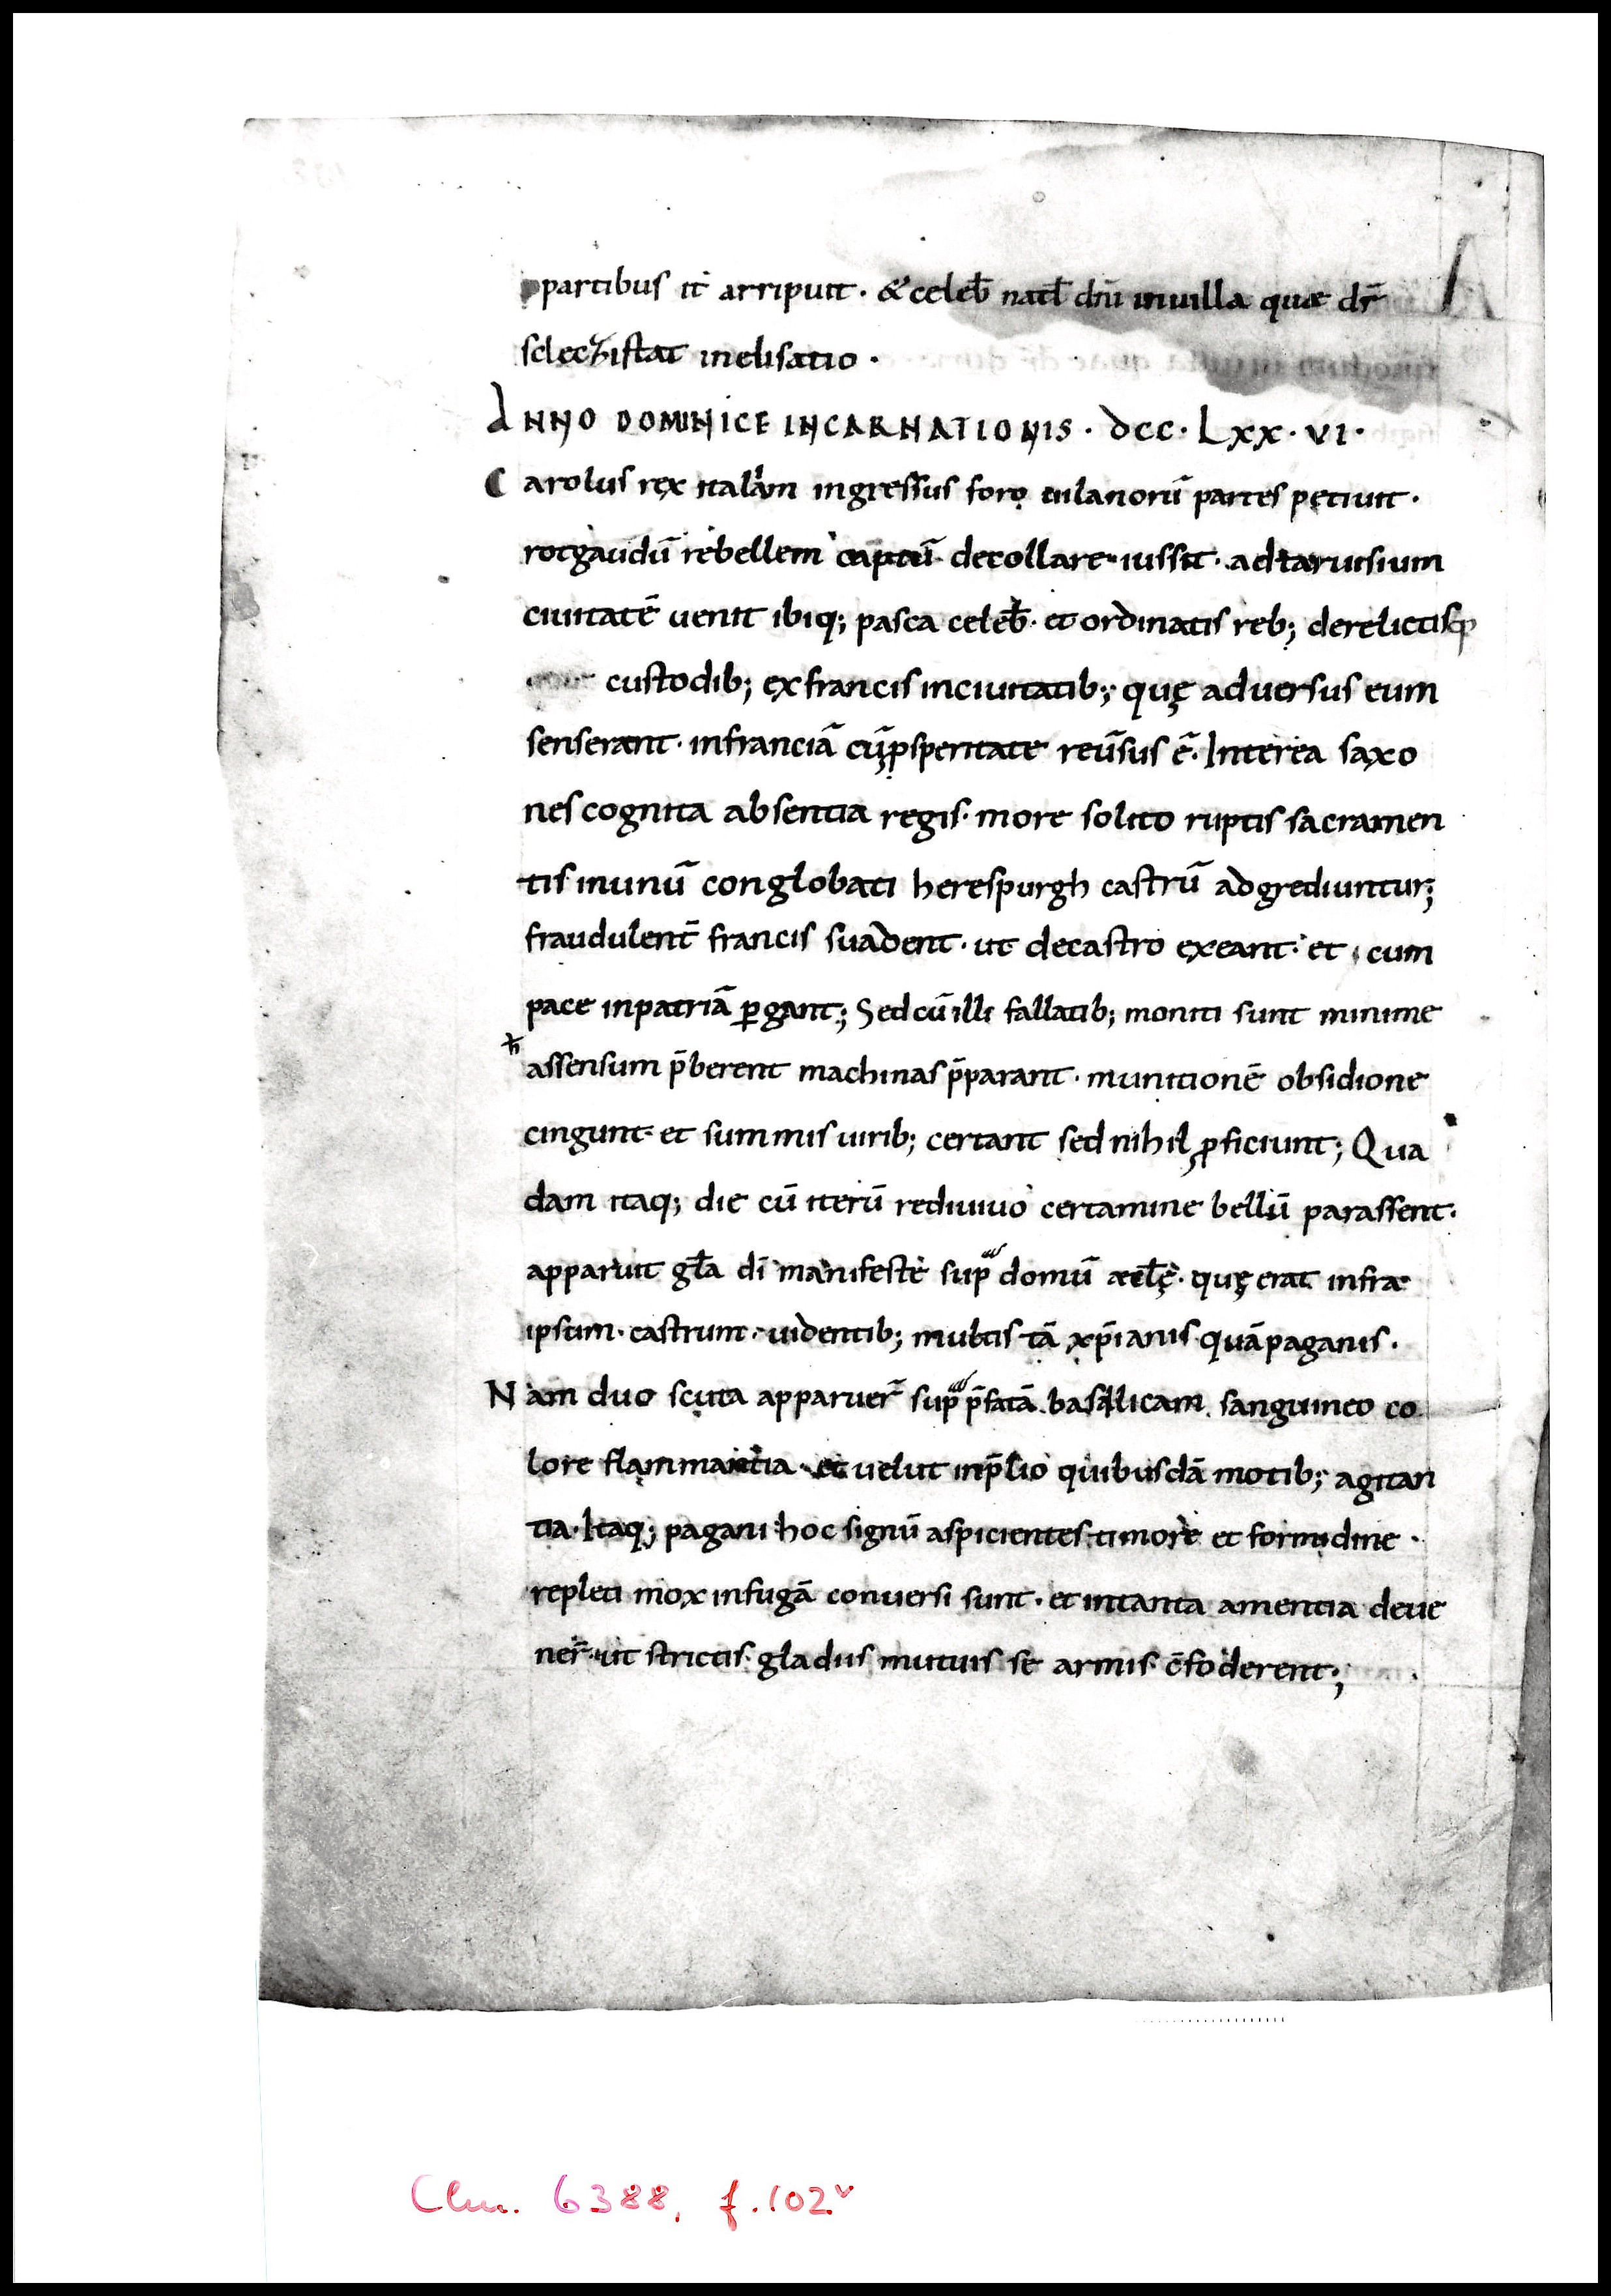 partibus it arripuit · & celeb̄ natl̄ dn̄i inuilla quae dr̄
sclechistat inelisatio ·
ANNO DOMINICE INCARNATIONIS · DCC · LXX · VI ·
Carolus rex italiam ingressus foro iulanorū partes petiuit ·
rotgaudū rebellem captū decollare iussit · adtaruisium
ciuitatē uenit ibiq; pasca celeb̄ · et ordinatis reb; derelictisq
custodib; exfrancis inciuitatib; quę aduersus eum
senserant · infranciā cū ꝓsperitate reūsus ē · Interea saxo
nes cognita absentia regis · more solito ruptis sacramen
tis inunū conglobati herespurgh castrū adgrediuntur;
fraudulent̄ francis suadent · ut decastro exeant · et cum
pace inpatriā ꝑgant; Sed cū illi fallatib; moniti sunt minime
assensum p̄berent machinas p̄parant · munitionē obsidione
cingunt et summis uirib; certant sed nihil ꝓficiunt; Qua
dam itaq; die cū iterū rediuiuo certamine bellū parassent ·
apparuit gl̄a dī manifeste sup̄ domū aecl̄ę · quę erat infra
ipsum · castrum · uidentib; multis tā xp̄ianis quā paganis ·
Nam duo scuta apparuer̄ sup̄ p̄fatā basilicam sanguineo co
lore flammantia · et uelut inp̄lio quibusdā motib; agitan
tia · Itaq; pagani hoc signū aspicientes timore et formidine ·
repleti mox infugā conuersi sunt · et intanta amentia deue
ner̄ · ut strictis gladiis mutuis se armis c̄foderent;
Clm. 6388, f.102v